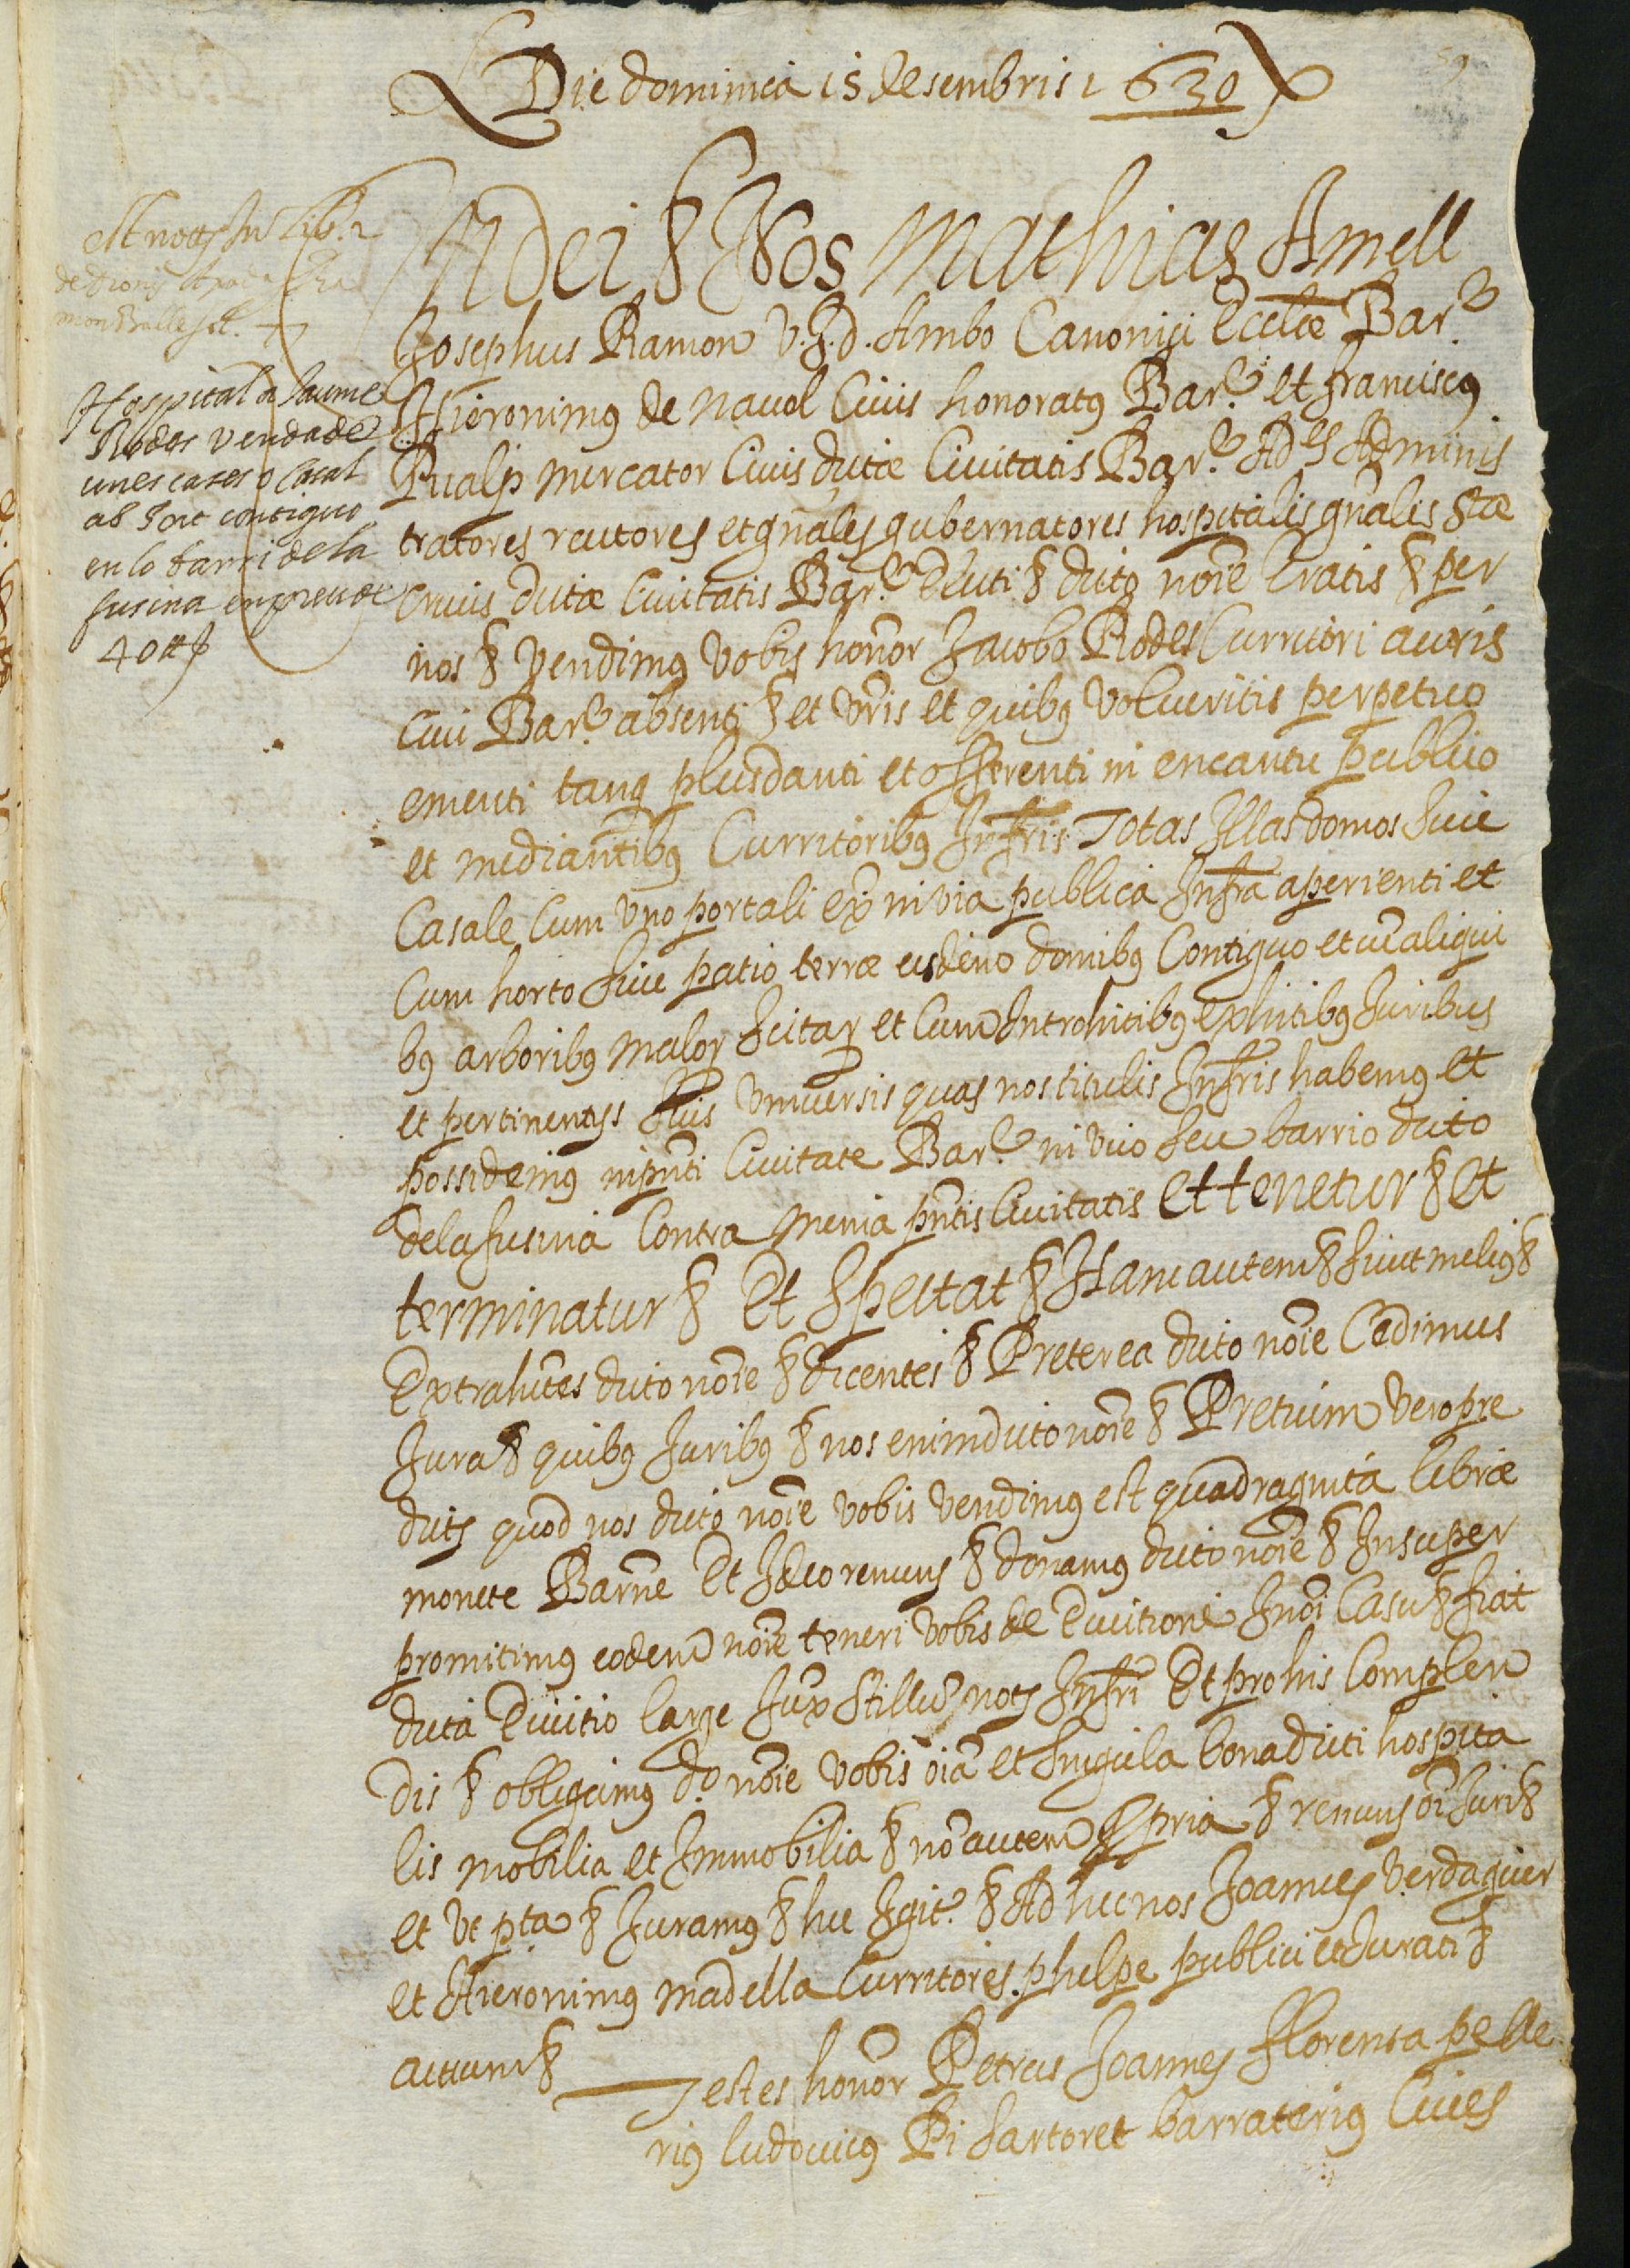 59
Die dominica 15 desembris 1630
Est notz In Lib. 2
mon Batlle sot.
Hospital a Jaume
Rodes venda de
unes cases o casal
ab Sort contiguo
en lo barri de la
fusina en preu de
40 ℔ ß
In Dei & Nos Mathias Amell
Josephus Ramon V.J.d. Ambo Canonici Eccliæ Barᵉ
Hieronimus de Navel Civis honoratus Barᵉ et franciscus
Pualp mercator Civis dictæ Civitatis Barᵉ Adminis
tratores rectores et gñales gubernatores hospitalis gñalis Stæ
Crucis dictæ Civitatis Barᵉ dicti & dicto nõie Gratis & per
nos & Vendimus Vobis honor Jacobo Rodes Curritori auris
Civi Barᵉ absenti & et vr̃is et quibus Volueritis perpetuo
ementi tanq̃ plus danti et offerenti in encantu publico
et mediantibus Curritoribus Infr̃is Totas Illas domos sive
Casale Cum Vno portali ex in via publica Infra aperienti et
Cum horto sive patio terræ eisdem domibus Contiguo et cũ aliqui
bus arboribus malor scitar et Cum Introhitibus exhitibus Juribus
et pertinentijs suis Vniversis quas nos titulis Infr̃is habemus et
possidemus in pñti Civitate Barᵉ in vico seu barrio dicto
dela fusina Contra menia pñtis Civitatis Et tenetur & Et
terminatur & Et Spectat & Hanc autem & sicut melius &
Extrahẽtes dicto nõie & dicentes & Preterea dicto nõie Cedimus
Jura & quibus Juribus & nos enim dicto nõie & Pretium vero pre
dictz quod nos dicto nõie vobis vendimus est quadraginta libræ
monete Barñe Et Ideo renuns & donamus dicto nõie & Insuper
promitimus eodem nõie teneri Vobis de Evictione In õi Casu & fiat
dicta Evictio large Jux̃ stillũ notz Infr̃i Et pro his Complen
dis & obligamus dº nõie Vobis oĩa et singula bona dicti hospita
lis mobilia et Immobilia & nõ autem ppria & renuns õi Juri &
et Vt pta & Juramus & hec Igit. & Ad hec nos Joannes Verdaguer
et Hieronimus madella Curritores phelpe publici et Jurati &
actum &
Testes honor Petrus Joannes Florensa pelle
rius ludovicus Pi Sartor et barraterius Cives